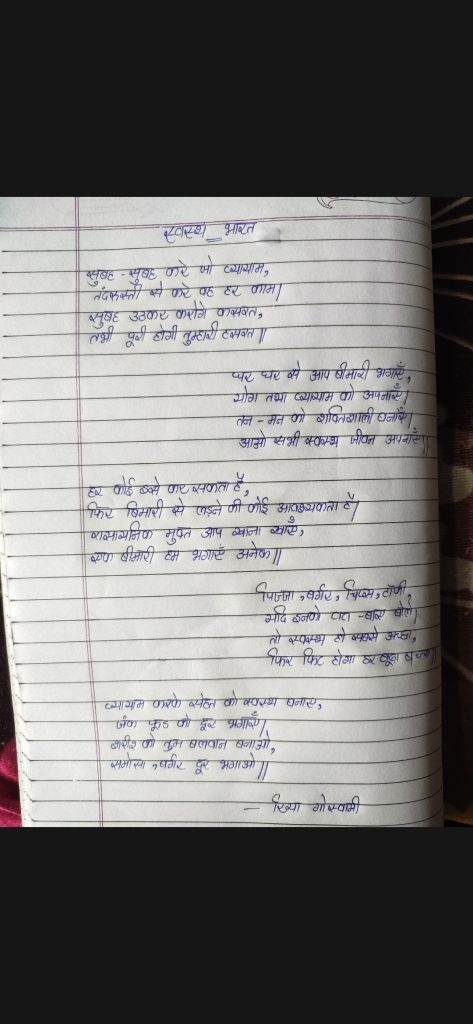 स्वस्थ भारत
सुबह - सुबह करे जो व्यायाम,
तंदरुस्ती से करे वह हर काम।
सुबह उठकर करोगे कसरत,
तभी पूरी होगी तुम्हारी हसरत॥
घर घर से आप बीमारी भगाएँ,
योग तथा व्यायाम को अपनाएँ।
तन - मन को शक्तिशाली बनाएँ।
आओ सभी स्वस्थ जीवन अपनाएँ॥
हर कोई इसे कर सकता है,
फिर बिमारी से लड़ने की कोई आवश्यकता है।
रासायनिक मुक्त आप खाना खाएँ,
एक बीमारी हम भगाएँ अनेक॥
पिज्जा, बर्गर, चिप्स, टॉफी,
यदि इनको टाटा - बाय बोलो।
तो स्वस्थ हो सबसे अच्छा,
फिर फिट होगा हर बूढ़ा बच्चा॥
व्यायाम करके सेहत को स्वस्थ बनाए,
जंक फूड को दूर भगाएँ।
शरीर को तुम बलवान बनाओ,
समोसा, बर्गर दूर भगाओ॥
— गोस्वामी